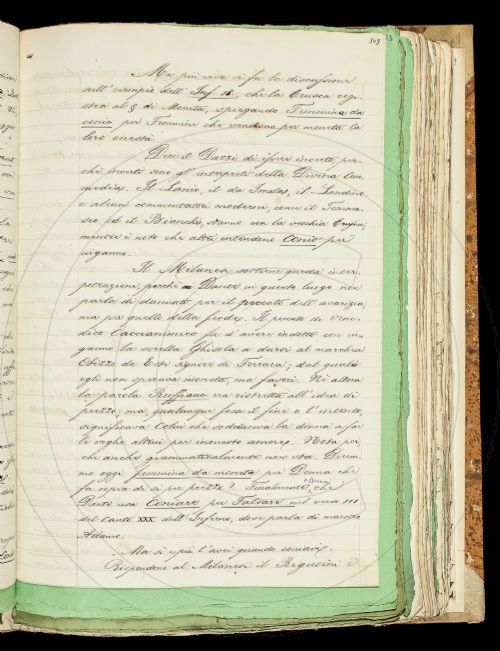 349
Ma più viva si fa la discussione
sull'esempio dell'Inf. 18, che la Crusca regi-
stra al § di Moneta, spiegando Femmina da
conio per Femmina che vendono per moneta la
loro onestà.
Dice il Dazzi di essere incerto, per-
chè incerti sono gl'interpreti della Divina Com-
media. Il Lanèo, il da Imola, il Landino
e alcuni commentatori moderni, come il Tomma-
seo ed il Bianchi, stanno con la vecchia Crusca,
mentre è noto che altri intendono Conio per
inganno.
Il Milanesi sostiene questa inter-
petrazione, perchè Dante in questo luogo non
parla di dannato per il peccato dell'avarizia,
ma per quello della frode. Il peccato di Vene-
dico Caccianimico fu d'avere indotto con in-
ganno la sorella Ghisola a darsi al marchese
Obizzo da Este signore di Ferrara; dal quale
egli non sperava moneta, ma favori. Nè allora
la parola Ruffiano era ristretta all'idea di
prezzo; ma, qualunque fosse il fine e l'intento,
significava Colui che seduceva la donna a far
le voglie altrui per inonesto amore. Nota poi,
che anche grammaticalmente non sta. Dicia-
mo oggi femmina da moneta per Donna che
fa copia di sè per prezzo? Finalmente, che
Dante usa Coniare per Falsare nel verso 111
del Canto XXX dell'Inferno, dove parla di maestro
Adamo,
Ma sì e più l'avei quando coniavi.
Rispondono al Milanesi il Rigutini e